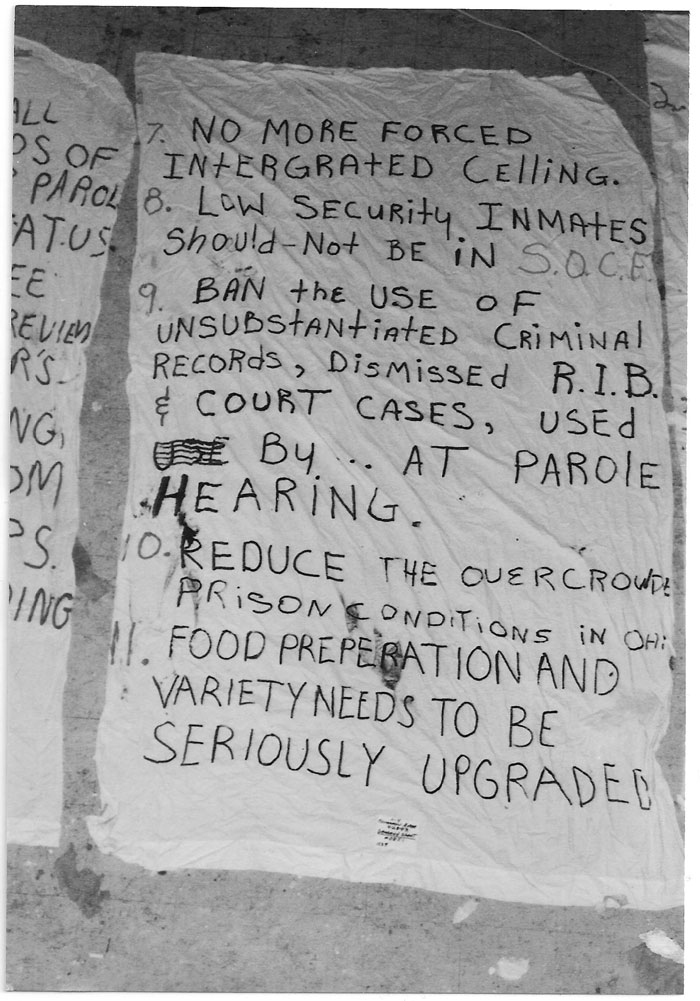 ALL
OS OF
PAROL
ATUS.
EE
REVIEW
R'S
NG,
OM
PS.
ING
7. NO MORE FORCED
INTERGRATED CELLING.
8. LOW SECURITY INMATES
Should-Not BE iN S.O.C.F.
9. BAN the USE OF
UNSUBStANtiAtED CRiMiNAl
RECORds, DisMissEd R.I.B.
& COURT CASES, USEd
By... AT PAROlE
HEARiNG.
10. REDUCE THE OVERCROWDE
PRiSON CONDiTiONS iN OHi
11. FOOD PREPERATION AND
VARIETY NEEDS TO BE
SERIOUSLY UPGRADED